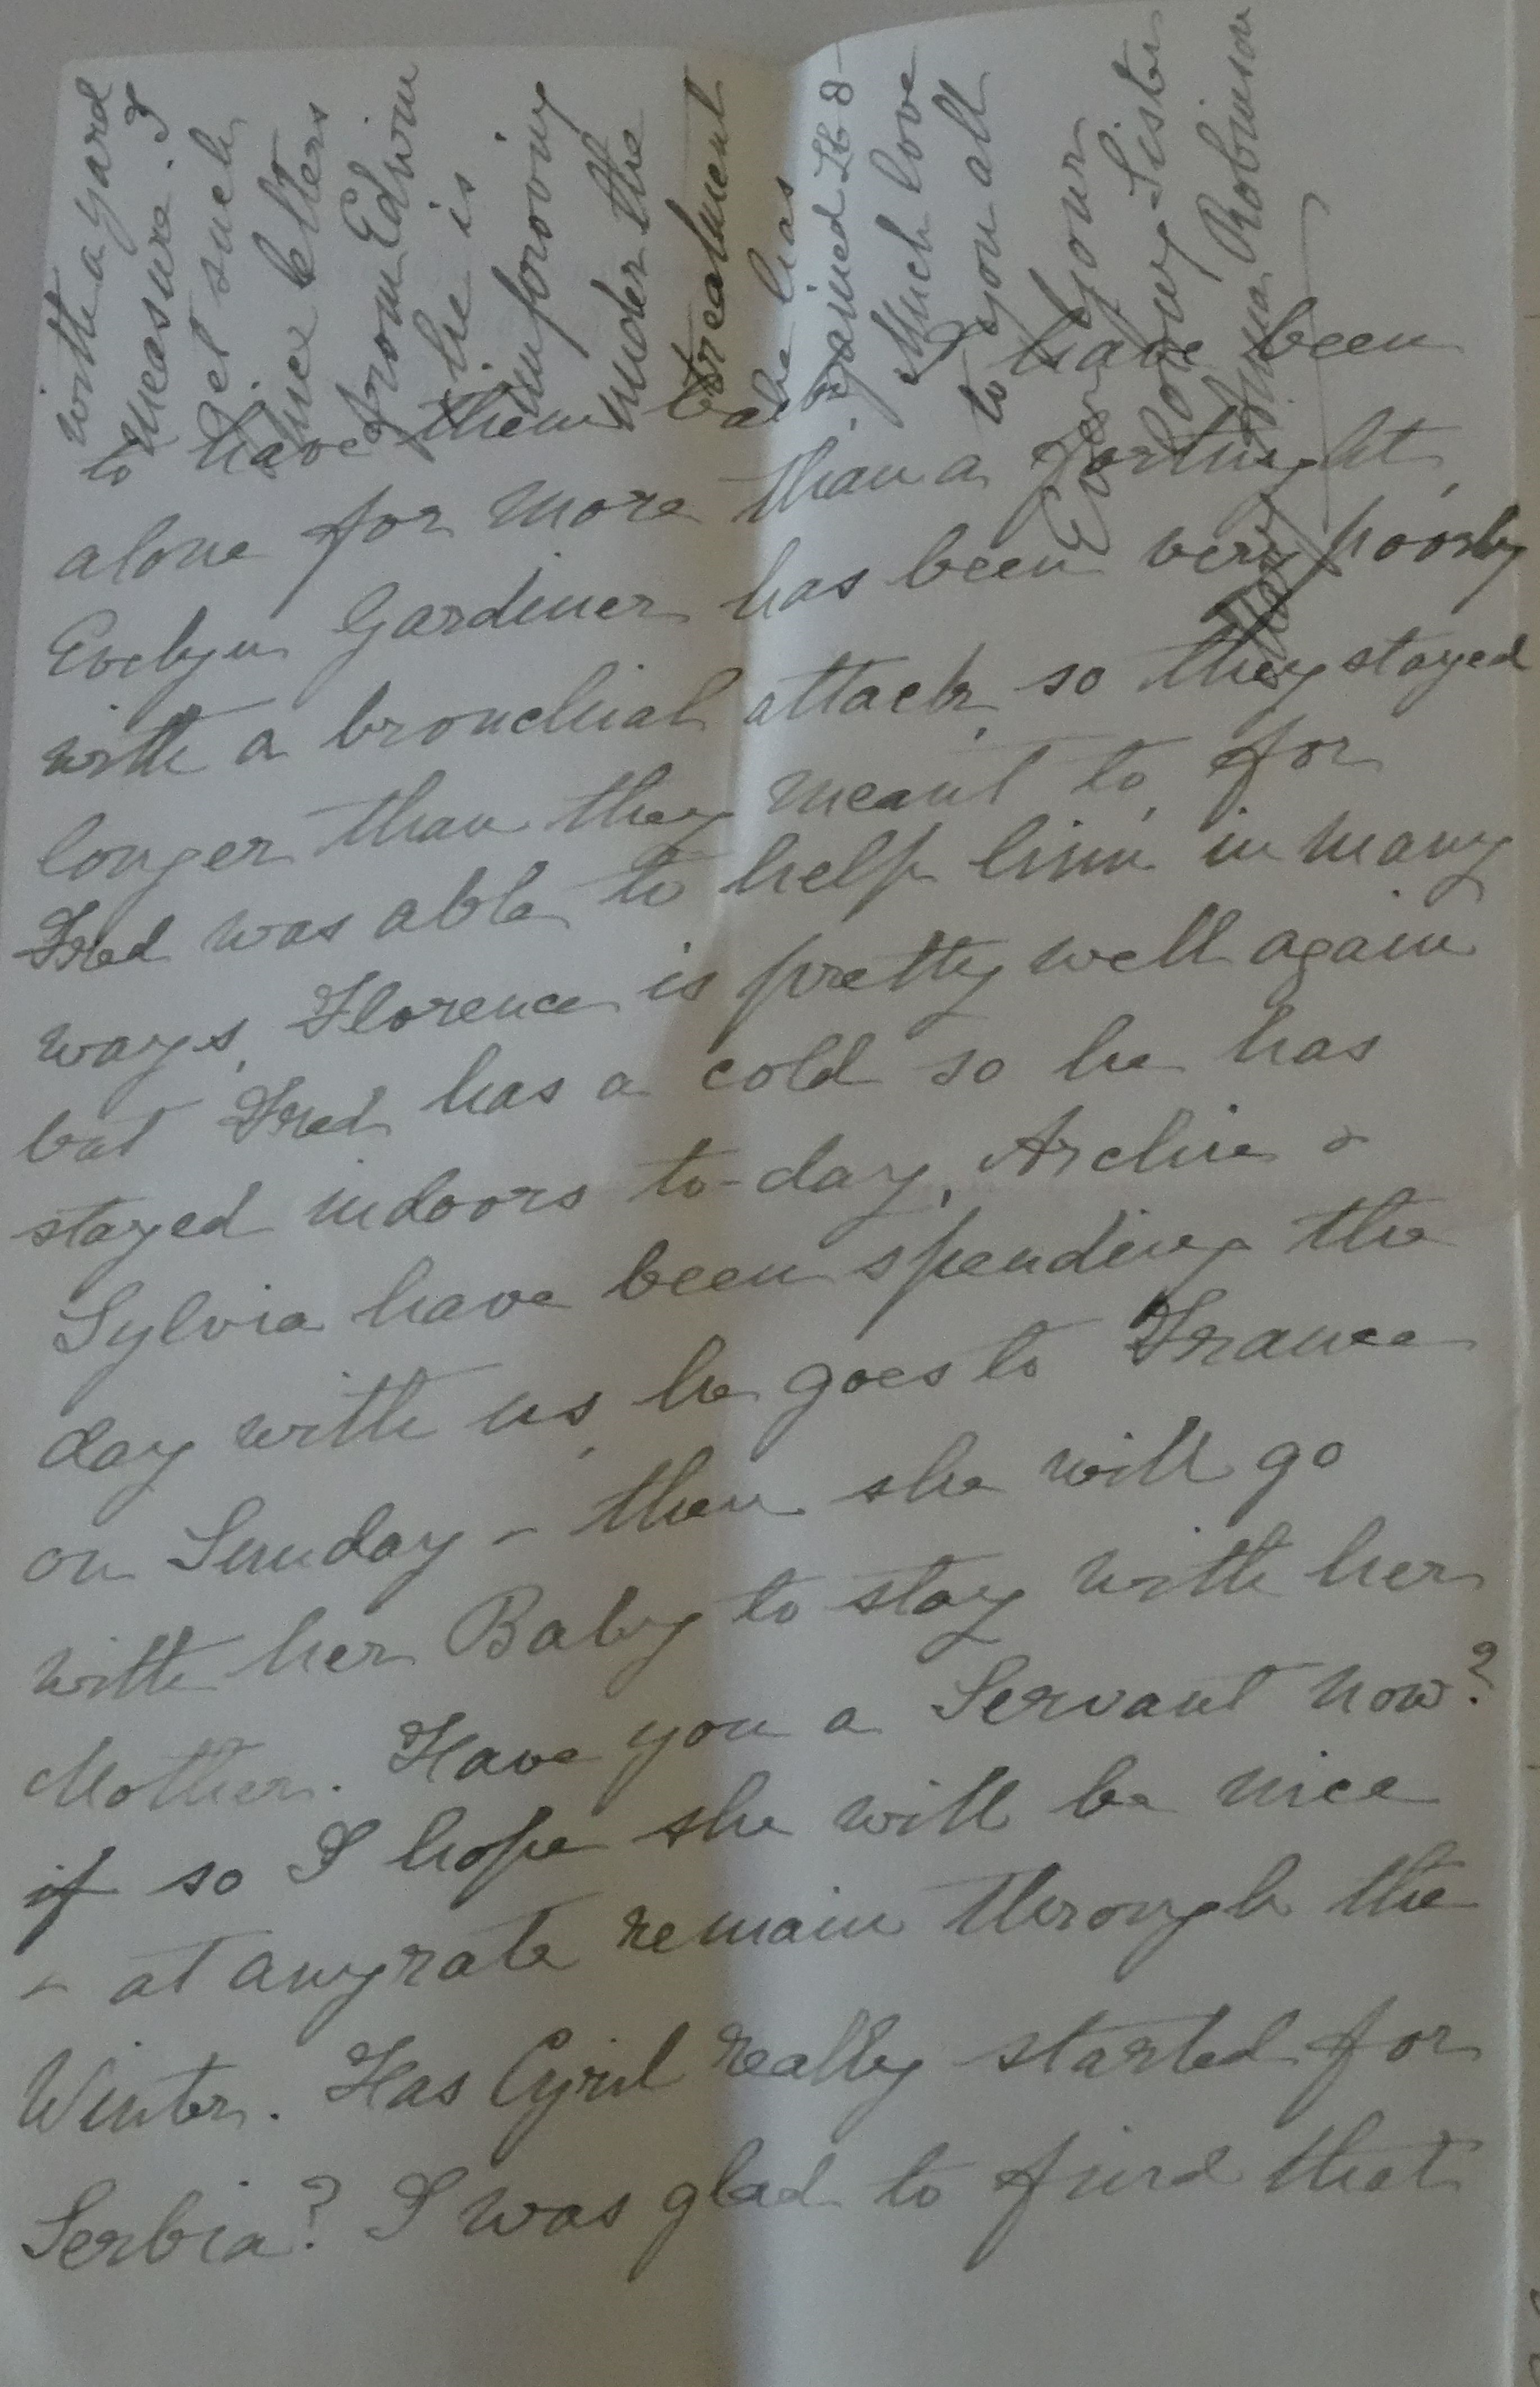 to have them back. I have been
alone for more than a fortnight,
Evelyn Gardiner has been very poorly
with a bronchial attack, so they stayed
longer than they meant to, for
Fred was able to help him in many
ways, Florence is pretty well again
but Fred has a cold so he has
stayed indoors to-day, Archie &
Sylvia have been spending the
day with us, he goes to France
on Sunday - then she will go
with her Baby to stay with her
Mother. Have you a Servant now?
if so I hope she will be nice
- at anyrate remain through the
Winter. Has Cyril really started for
Serbia? I was glad to find that
with a yard
measure. I
get such
nice letters
from Edwin
he is
improving
under the
treatment
he has
gained lb 8
Much love
to you all
Your
Ever loving Sister
Anna Robinson